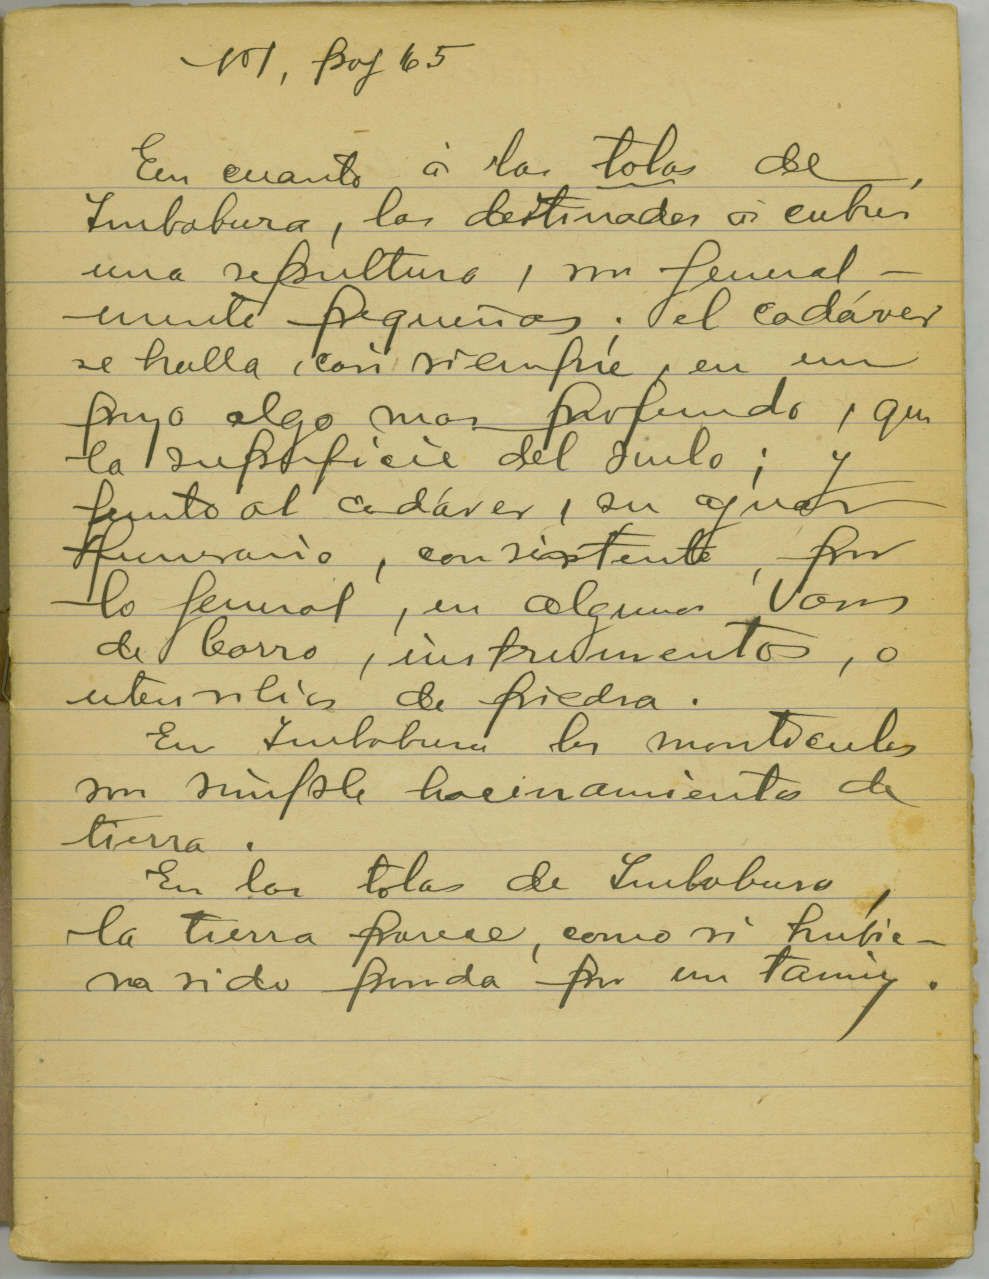 pag 65
En cuanto á las tolas de
Imbabura, las destinadas á cubrir
una sepultura, son general-
mente pequeñas; el cadáver
se halla, casi siempre, en un
poyo algo mas profundo, que
la superficie del suelo; y
junto al cadáver, su ajuar
funerario, consistente, por
lo general, en algunos vasos
de barro, instrumentos, o
utensilios de piedra.
En Imbabura los monticulos
son simple hacinamientos de
tierra.
En las tolas de Imbabura,
la tierra parece, como si hubie-
ra sido pasada por un tamiz.